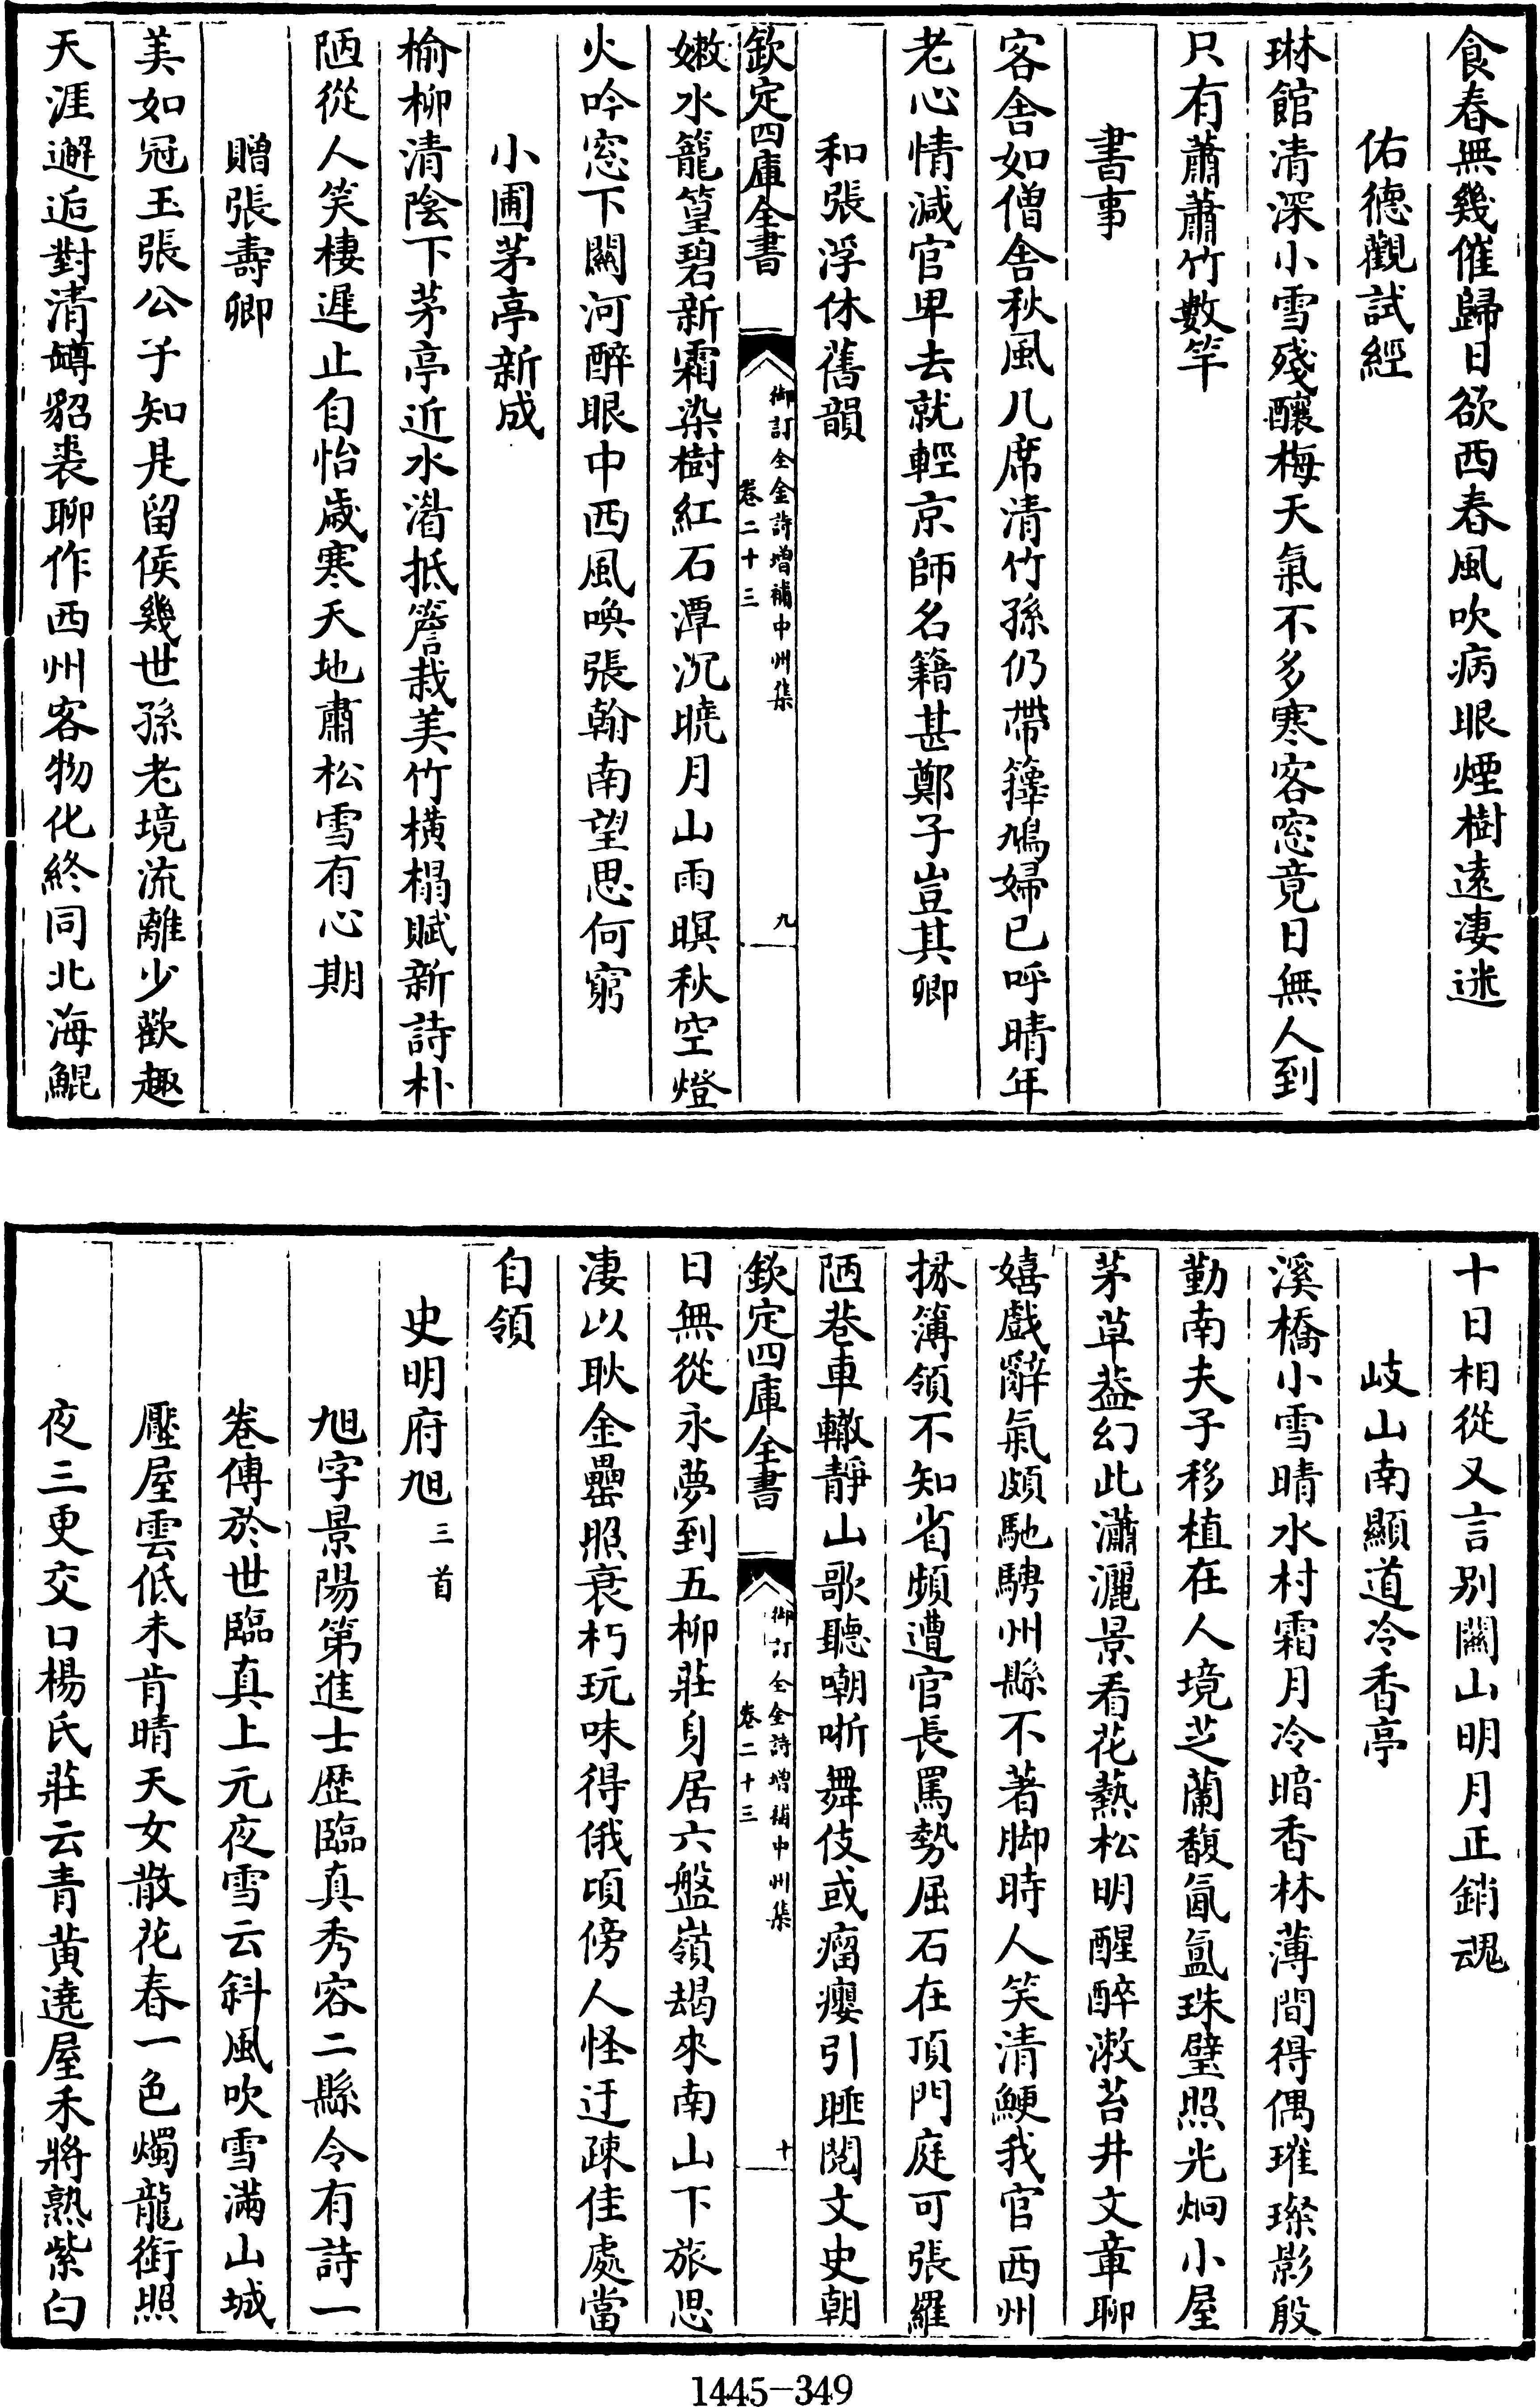 食春無幾催歸日欲西春風吹病眼煙樹遠淒迷
佑德觀試經
琳館清深小雪殘釀梅天氣不多寒客窓竟日無人到
只有蕭蕭竹數竿
書事
客舍如僧舍秋風几席清竹孫仍帶籜鳩婦已呼晴年
老心情減官卑去就輕京師名籍甚鄭子豈其卿
和張浮休舊韻
欽定四庫全書
御訂全金詩增補中州集
卷二十三
九
嫩水籠篁碧新霜染樹紅石潭沉曉月山雨暝秋空燈
火吟窓下關河醉眼中西風喚張翰南望思何窮
小圃茅亭新成
榆柳清陰下茅亭近水湄抵簷栽美竹橫榻賦新詩朴
陋從人笑棲遲止自怡歲寒天地肅松雪有心期
贈張壽卿
美如冠玉張公子知是留侯幾世孫老境流離少歡趣
天涯邂逅對清罇貂裘聊作西州客物化終同北海鯤
十日相從又言别關山明月正銷魂
岐山南顯道冷香亭
溪橋小雪晴水村霜月冷暗香林薄間得偶璀璨影殷
勤南夫子移植在人境芝蘭馥氤氳珠璧照光炯小屋
茅草葢幻此瀟灑景看花熱松明醒醉漱苔井文章聊
嬉戲辭氣頗馳騁州縣不著脚時人笑清鯁我官西州
掾簿領不知省頻遭官長罵勢屈石在頂門庭可張羅
陋巷車轍靜山歌聽嘲哳舞伎或瘤癭引睡閱文史朝
欽定四庫全書
御訂全金詩增補中州集
卷二十三
十
日無從永夢到五柳莊身居六盤嶺朅來南山下旅思
淒以耿金罍照衰朽玩味得俄頃傍人怪迂疎佳處當
自領
史明府旭三首
旭字景陽第進士歷臨真秀容二縣令有詩一
卷傳於世臨真上元夜雪云斜風吹雪滿山城
壓屋雲低未肯晴天女散花春一色燭龍銜照
夜三更交口楊氏莊云青黄遶屋禾將熟紫白
1445-349